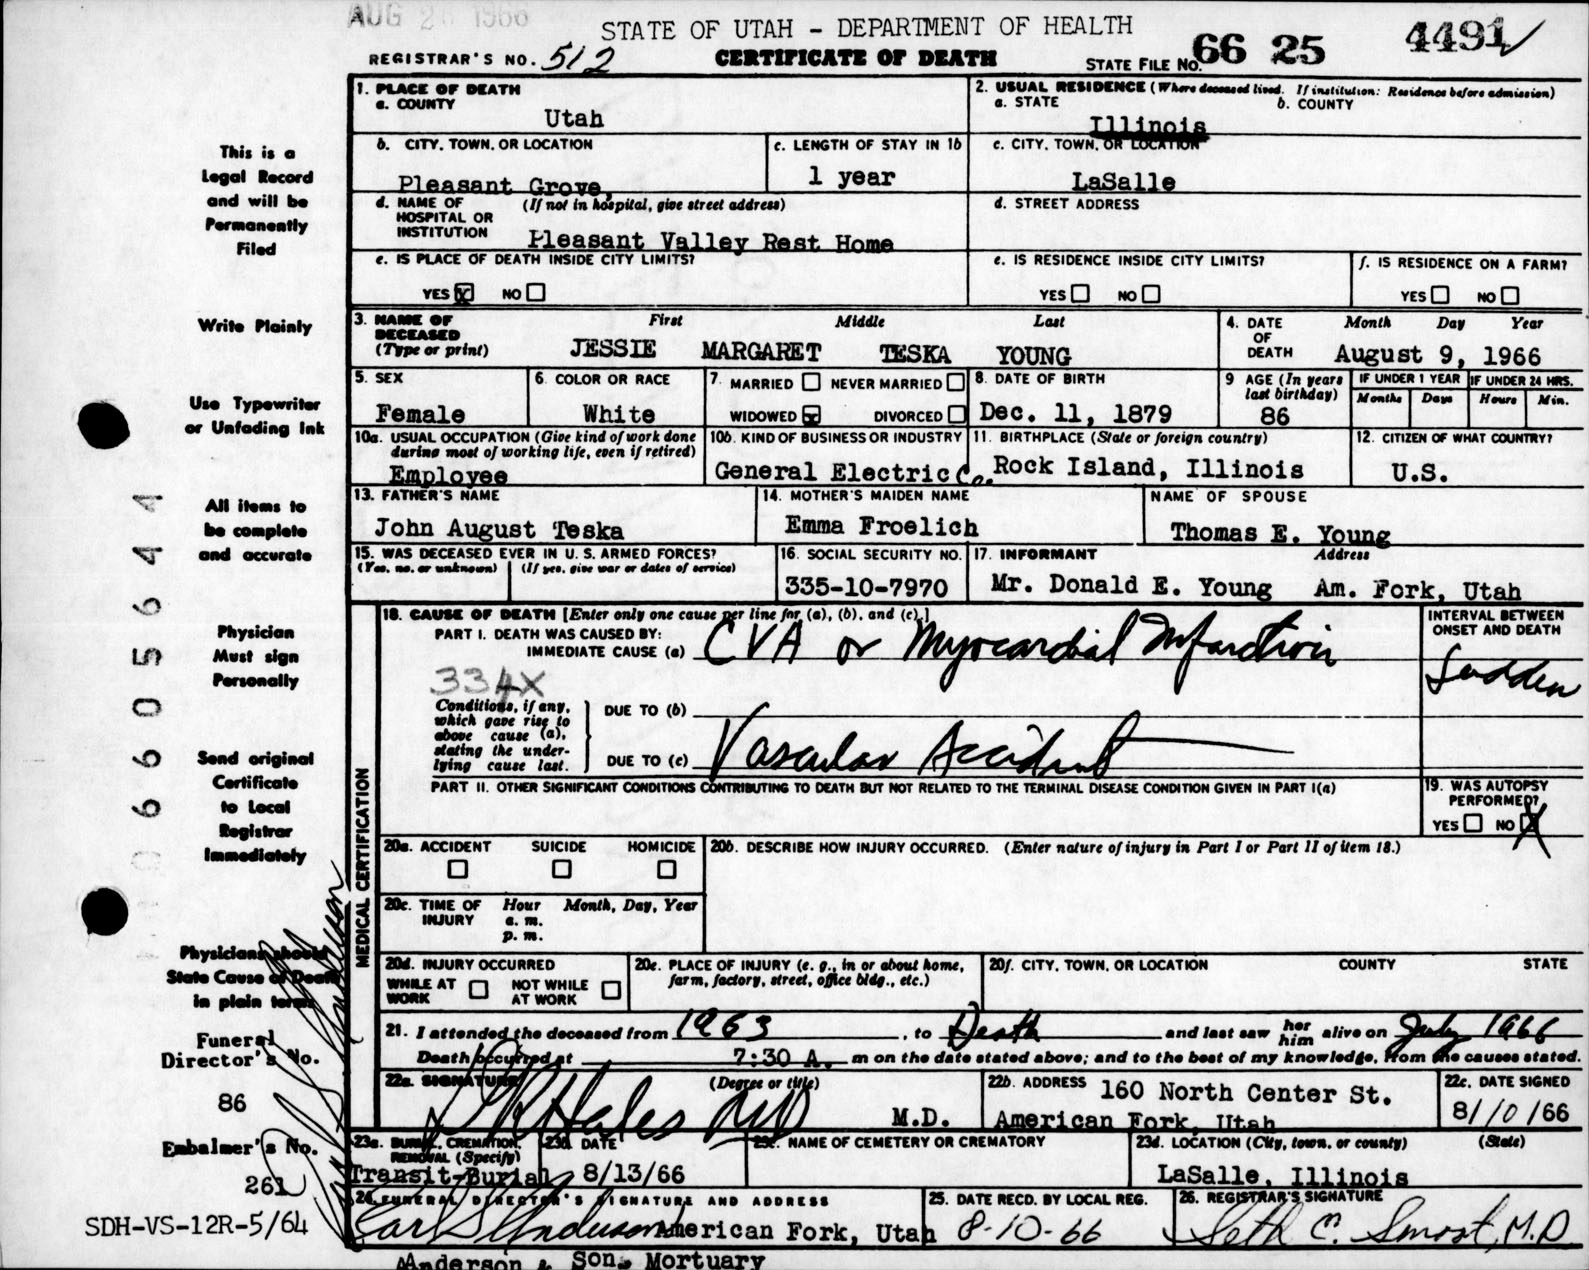 AUG 26 1966
STATE OF UTAH - DEPARTMENT OF HEALTH
REGISTRAR'S NO. 512 CERTIFICATE OF DEATH STATE FILE NO. 66 25 4491
1. PLACE OF DEATH
a. COUNTY
Utah
2. USUAL RESIDENCE (Where deceased lived. If institution: Residence before admission)
a. STATE b. COUNTY
Illinois
b. CITY, TOWN, OR LOCATION
Pleasant Grove,
c. LENGTH OF STAY IN 1b
1 year
c. CITY, TOWN, OR LOCATION
LaSalle
d. NAME OF HOSPITAL OR INSTITUTION (If not in hospital, give street address)
Pleasant Valley Rest Home
d. STREET ADDRESS
e. IS PLACE OF DEATH INSIDE CITY LIMITS?
YES X NO
e. IS RESIDENCE INSIDE CITY LIMITS?
YES NO
f. IS RESIDENCE ON A FARM?
YES NO
3. NAME OF DECEASED (Type or print) First Middle Last
JESSIE MARGARET TESKA YOUNG
4. DATE OF DEATH Month Day Year
August 9, 1966
5. SEX
Female
6. COLOR OR RACE
White
7. MARRIED NEVER MARRIED
WIDOWED X DIVORCED
8. DATE OF BIRTH
Dec. 11, 1879
9 AGE (In years last birthday)
86
IF UNDER 1 YEAR IF UNDER 24 HRS.
Months Days Hours Min.
10a. USUAL OCCUPATION (Give kind of work done during most of working life, even if retired)
Employee
10b. KIND OF BUSINESS OR INDUSTRY
General Electric Co.
11. BIRTHPLACE (State or foreign country)
Rock Island, Illinois
12. CITIZEN OF WHAT COUNTRY?
U.S.
13. FATHER'S NAME
John August Teska
14. MOTHER'S MAIDEN NAME
Emma Froelich
NAME OF SPOUSE
Thomas E. Young
15. WAS DECEASED EVER IN U.S. ARMED FORCES?
(Yes, no, or unknown) (If yes, give war or dates of service)
16. SOCIAL SECURITY NO.
335-10-7970
17. INFORMANT Address
Mr. Donald E. Young Am. Fork, Utah
18. CAUSE OF DEATH [Enter only one cause per line for (a), (b), and (c).]
PART I. DEATH WAS CAUSED BY:
IMMEDIATE CAUSE (a) CVA or Myocardial Infarction
INTERVAL BETWEEN ONSET AND DEATH
Sudden
334X
Conditions, if any, which gave rise to above cause (a), stating the underlying cause last.
DUE TO (b)
DUE TO (c) Vascular Accident
PART II. OTHER SIGNIFICANT CONDITIONS CONTRIBUTING TO DEATH BUT NOT RELATED TO THE TERMINAL DISEASE CONDITION GIVEN IN PART I(a)
19. WAS AUTOPSY PERFORMED?
YES NO X
20a. ACCIDENT SUICIDE HOMICIDE
20b. DESCRIBE HOW INJURY OCCURRED. (Enter nature of injury in Part I or Part II of item 18.)
20c. TIME OF INJURY Hour Month, Day, Year
a. m.
p. m.
20d. INJURY OCCURRED
WHILE AT WORK NOT WHILE AT WORK
20e. PLACE OF INJURY (e. g., in or about home, farm, factory, street, office bldg., etc.)
20f. CITY, TOWN, OR LOCATION COUNTY STATE
21. I attended the deceased from 1963, to Death and last saw her him alive on July 1966
Death occurred at 7:30 A. m on the date stated above; and to the best of my knowledge, from the causes stated.
22a. SIGNATURE (Degree or title)
Hales MD M.D.
22b. ADDRESS 160 North Center St.
American Fork, Utah
22c. DATE SIGNED
8/10/66
23a. BURIAL, CREMATION, REMOVAL (Specify)
Transit-Burial
23b. DATE
8/13/66
23c. NAME OF CEMETERY OR CREMATORY
23d. LOCATION (City, town, or county) (State)
LaSalle, Illinois
24. FUNERAL DIRECTOR'S SIGNATURE AND ADDRESS
Anderson American Fork, Utah
Anderson & Son, Mortuary
25. DATE RECD. BY LOCAL REG.
8-10-66
26. REGISTRAR'S SIGNATURE
Seth C. Smoot, M.D
MEDICAL CERTIFICATION
This is a
Legal Record
and will be
Permanently
Filed
Write Plainly
Use Typewriter
or Unfading Ink
All items to
be complete
and accurate
Physician
Must sign
Personally
Send original
Certificate
to Local
Registrar
Immediately
Physicians should
State Cause of Death
in plain terms
Funeral
Director's No.
86
Embalmer's No.
261
SDH-VS-12R-5/64